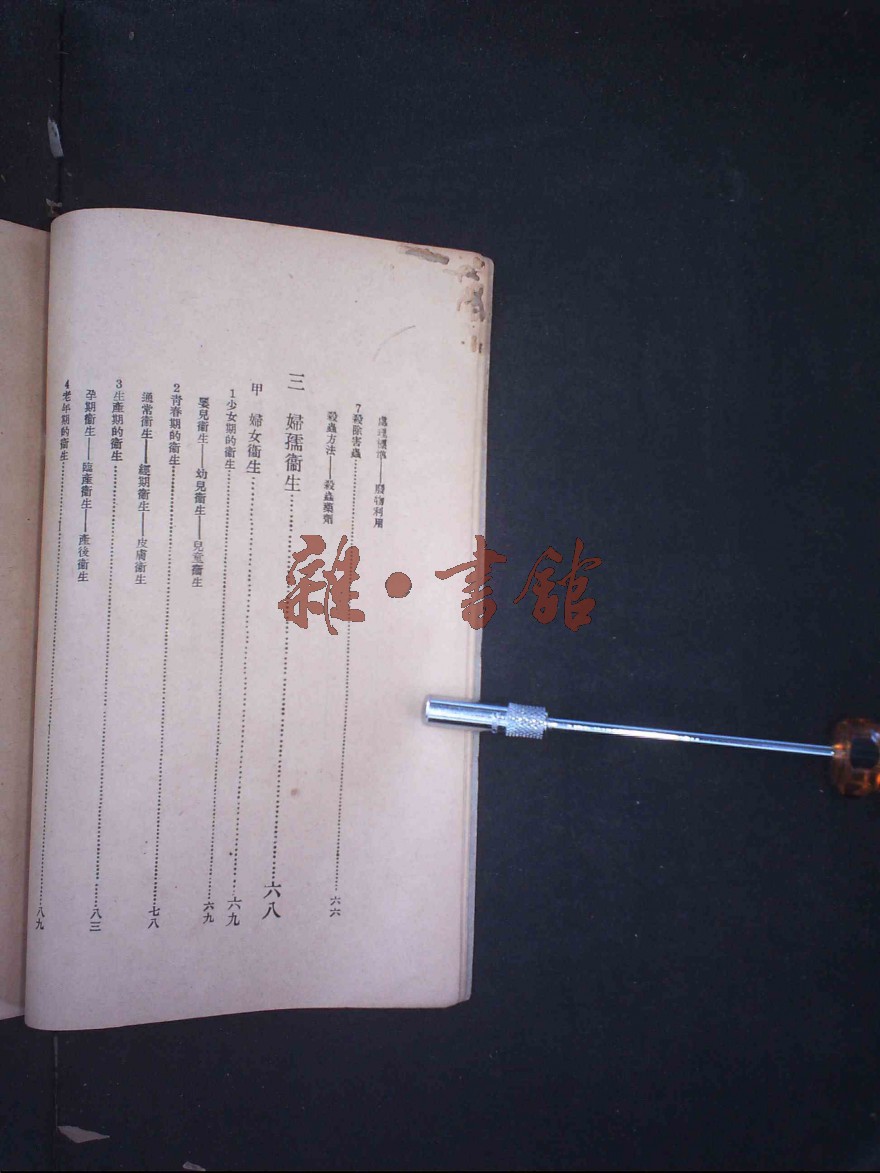 處理糞溺——廢物利用
7殺除害蟲……六六
殺蟲方法——殺蟲藥劑
三 婦孺衞生……六八
甲 婦女衞生……六九
1少女期的衞生……六九
嬰兒衞生——幼兒衞生——兒童衞生
2青春期的衞生……七八
通常衞生——經期衞生——皮膚衞生
3生產期的衞生……八三
孕期衞生——臨產衞生——產後衞生
4老年期的衞生……八九
雜·書館